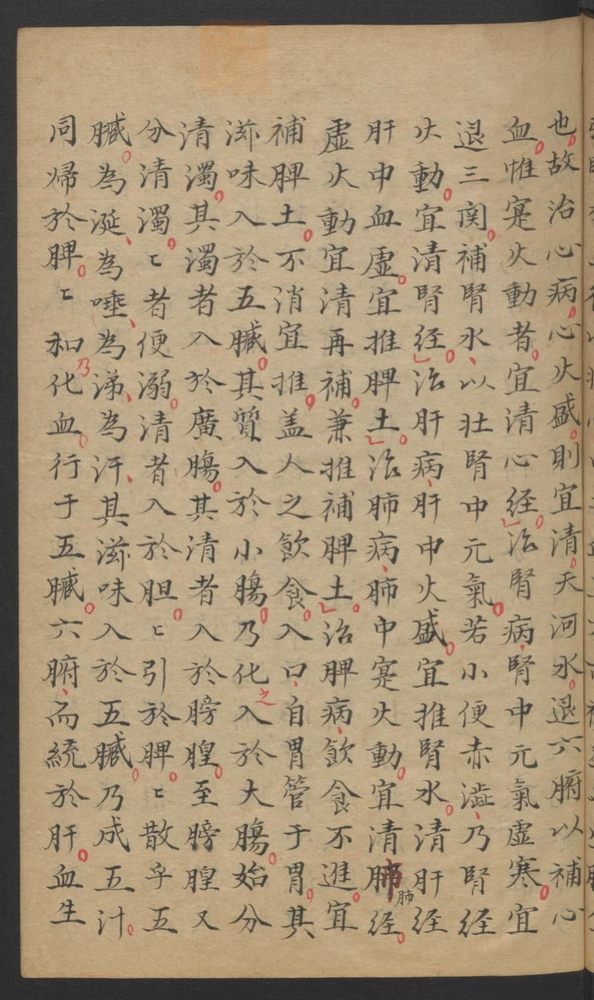 也故治心病心火盛則宜清天河水退六腑以補心
血惟寔火動者宜清心經治腎病腎中元氣虛寒宜
退三関補腎水以壯腎中元氣若小便赤澁乃腎經
火動宜清腎經治肝病肝中火盛宜推腎水清肝經
肝中血虛宜推脾土治肺病肺中寔火動宜清肺經
虛火動宜清再補兼推補脾土治脾病飲食不進宜
補脾土不消宜推盖人之飲食入口自胃管于胃其
滋味入於五臓其質入於小膓乃化之入於大膓始分
清濁其濁者入於廣膓其清者入於膀胱至膀胱又
分清濁〻者便溺清者入於胆〻引於脾〻散乎五
臓為涎為唾為涕為汗其滋味入於五臓乃成五汁
同帰於脾〻和乃化血行于五臓六腑而統於肝血生